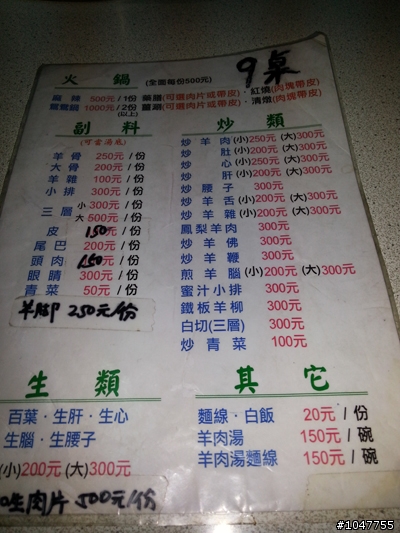 9桌
火鍋 (全園每份500元)
麻辣 500元/1份 藥膳(可選肉片或帶皮)·紅燒(肉塊帶皮)
鴛鴦鍋 1000元/2份 薑湯(可選肉片或帶皮)·清燉(肉塊帶皮)
(以上)
副料
(可當湯底)
羊骨 250元/份
大骨 200元/份
羊雜 100元/份
小排 300元/份
三層 小 300元/份
大 500元/份
皮 150元/份
尾巴 200元/份
頭肉 150元/份
眼睛 300元/份
青菜 50元/份
250元/份
炒類
炒羊肉(小)250元(大)300元
炒肚(小)200元(大)300元
炒心(小)250元(大)300元
炒肝(小)200元(大)300元
炒腰子 300元
炒羊舌(小)200元(大)300元
炒羊雜(小)200元(大)300元
鳳梨羊肉 300元
炒羊佛 300元
炒羊鞭 300元
煎羊腦(小)200元(大)300元
蜜汁小排 300元
鐵板羊柳 300元
白切(三層) 300元
炒青菜 100元
生類
百葉·生肝·生心
生腦·生腰子
(小)200元(大)300元
生肉片 500元/份
其它
麵線·白飯 20元/份
羊肉湯 150元/碗
羊肉湯麵線 150元/碗
#1047755